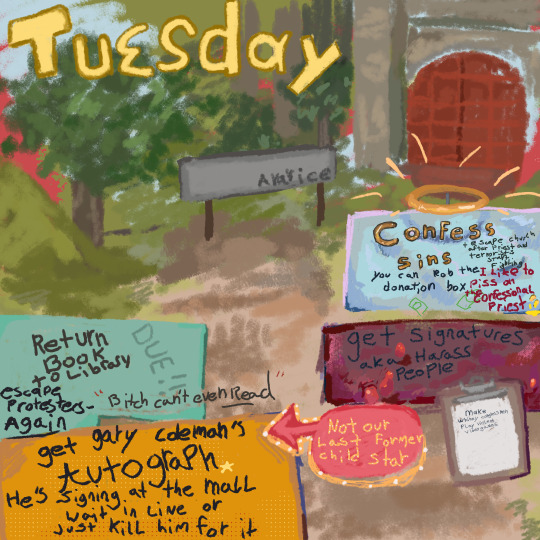 Tuesday
Avarice
Confess
sins
+ escape church
after priest and
terrorists
start
fighting
you can rob the
donation box
I Like to
piss on
the
confessional
Priest
Return
Book
to Library
DUE!!
escape
Protesters-
Again
"Bitch can't even Read"
get signatures
aka Harass
People
Make
Whiney congressmen
Play violent
videogames
get gary coleman's
Autograph
He's signing at the mall
wait in Line or
Just kill him for it
Not our
Last Former
child star